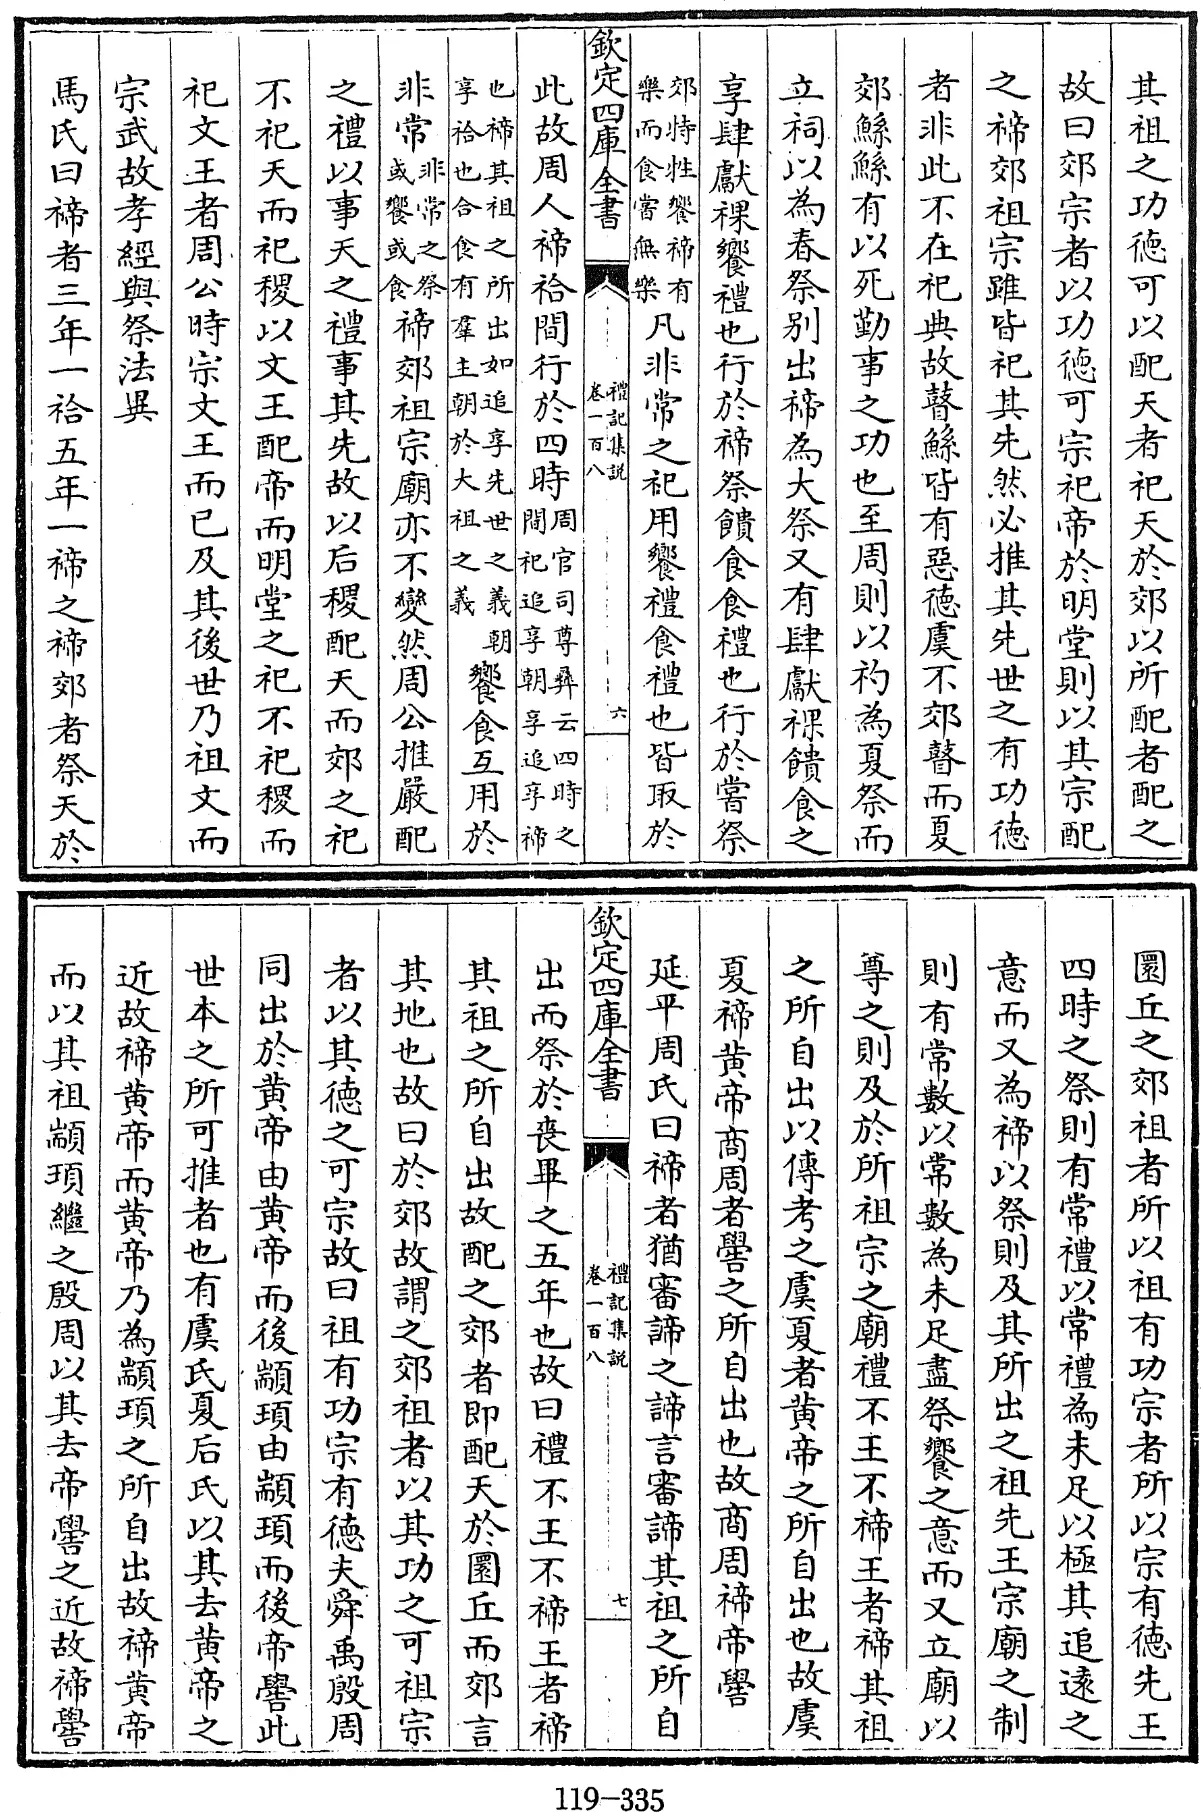 其祖之功徳可以配天者祀天於郊以所配者配之
故曰郊宗者以功徳可宗祀帝於明堂則以其宗配
之禘郊祖宗雖皆祀其先然必推其先世之有功徳
者非此不在祀典故瞽鯀皆有惡徳虞不郊瞽而夏
郊鯀鯀有以死勤事之功也至周則以礿為夏祭而
立祠以為春祭别出禘為大祭又有肆獻祼饋食之
享肆獻祼饗禮也行於禘祭饋食食禮也行於嘗祭
郊特牲饗禘有樂而食嘗無樂凡非常之祀用饗禮食禮也皆取於
欽定四庫全書 禮記集説 卷一百八 六
此故周人禘祫間行於四時周官司尊彝云四時之間祀追享朝享追享禘
也禘其祖之所出如追享先世之義朝享祫也合食有羣主朝於大祖之義饗食互用於
非常非常之祭或饗或食禘郊祖宗廟亦不變然周公推嚴配
之禮以事天之禮事其先故以后稷配天而郊之祀
不祀天而祀稷以文王配帝而明堂之祀不祀稷而
祀文王者周公時宗文王而已及其後世乃祖文而
宗武故孝經與祭法異
馬氏曰禘者三年一祫五年一禘之禘郊者祭天於
圜丘之郊祖者所以祖有功宗者所以宗有徳先王
四時之祭則有常禮以常禮為未足以極其追逺之
意而又為禘以祭則及其所出之祖先王宗廟之制
則有常數以常數為未足盡祭饗之意而又立廟以
尊之則及於所祖宗之廟禮不王不禘王者禘其祖
之所自出以傳考之虞夏者黄帝之所自出也故虞
夏禘黄帝商周者嚳之所自出也故商周禘帝嚳
延平周氏曰禘者猶審諦之諦言審諦其祖之所自
欽定四庫全書 禮記集説 卷一百八 七
出而祭於喪畢之五年也故曰禮不王不禘王者禘
其祖之所自出故配之郊者即配天於圜丘而郊言
其地也故曰於郊故謂之郊祖者以其功之可祖宗
者以其徳之可宗故曰祖有功宗有徳夫舜禹殷周
同出於黄帝由黄帝而後顓頊由顓頊而後帝嚳此
世本之所可推者也有虞氏夏后氏以其去黄帝之
近故禘黄帝而黄帝乃為顓頊之所自出故禘黄帝
而以其祖顓頊繼之殷周以其去帝嚳之近故禘嚳
119-335